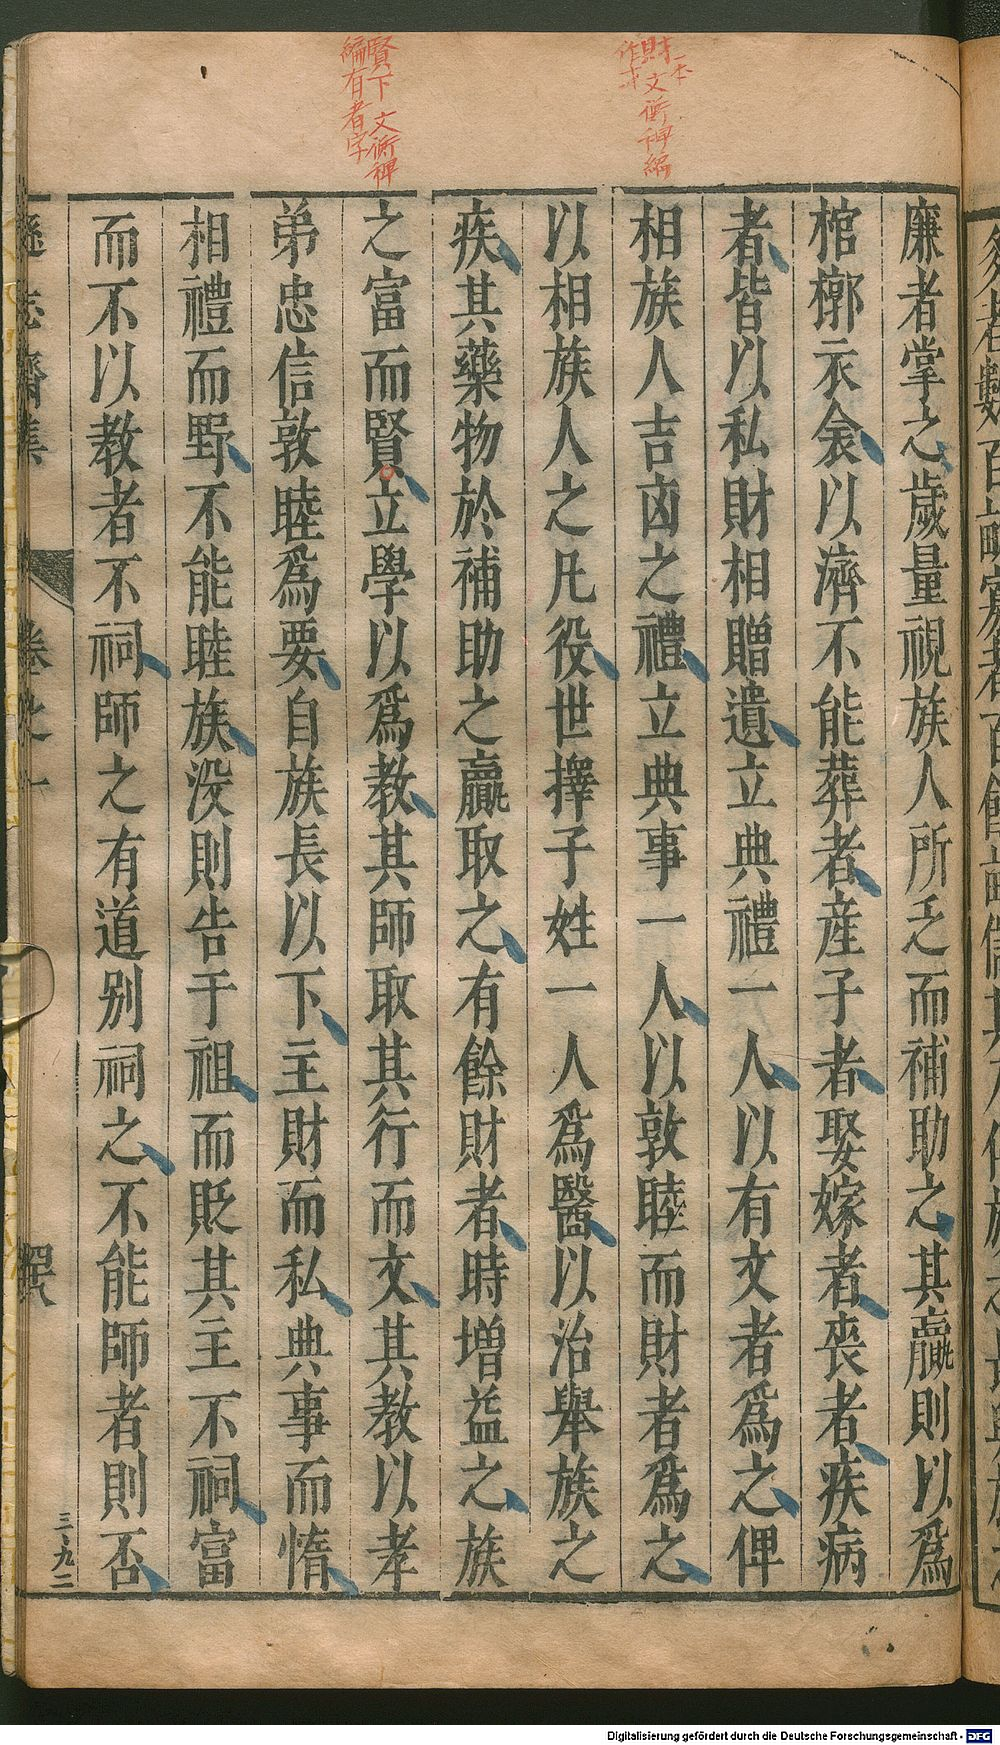 財一本
作才 文衡稗編
賢下 文衡稗
編有者字
廉者掌之歲量視族人所乏而補助之其贏則以爲
棺槨衣衾以濟不能葬者産子者娶嫁者喪者疾病
者皆以私財相贈遺立典禮一人以有文者爲之俾
相族人吉凶之禮立典事一人以敦睦而財者爲之
以相族人之凡役世擇子姓一人爲醫以治舉族之
疾其藥物於補助之贏取之有餘財者時增益之族
之富而賢立學以爲教其師取其行而文其教以孝
弟忠信敦睦爲要自族長以下主財而私典事而惰
相禮而野不能睦族没則告于祖而貶其主不祠富
而不以教者不祠師之有道别祠之不能師者則否
遜志齋集 卷之一
三九二
Digitalisierung gefördert durch die Deutsche Forschungsgemeinschaft - DFG